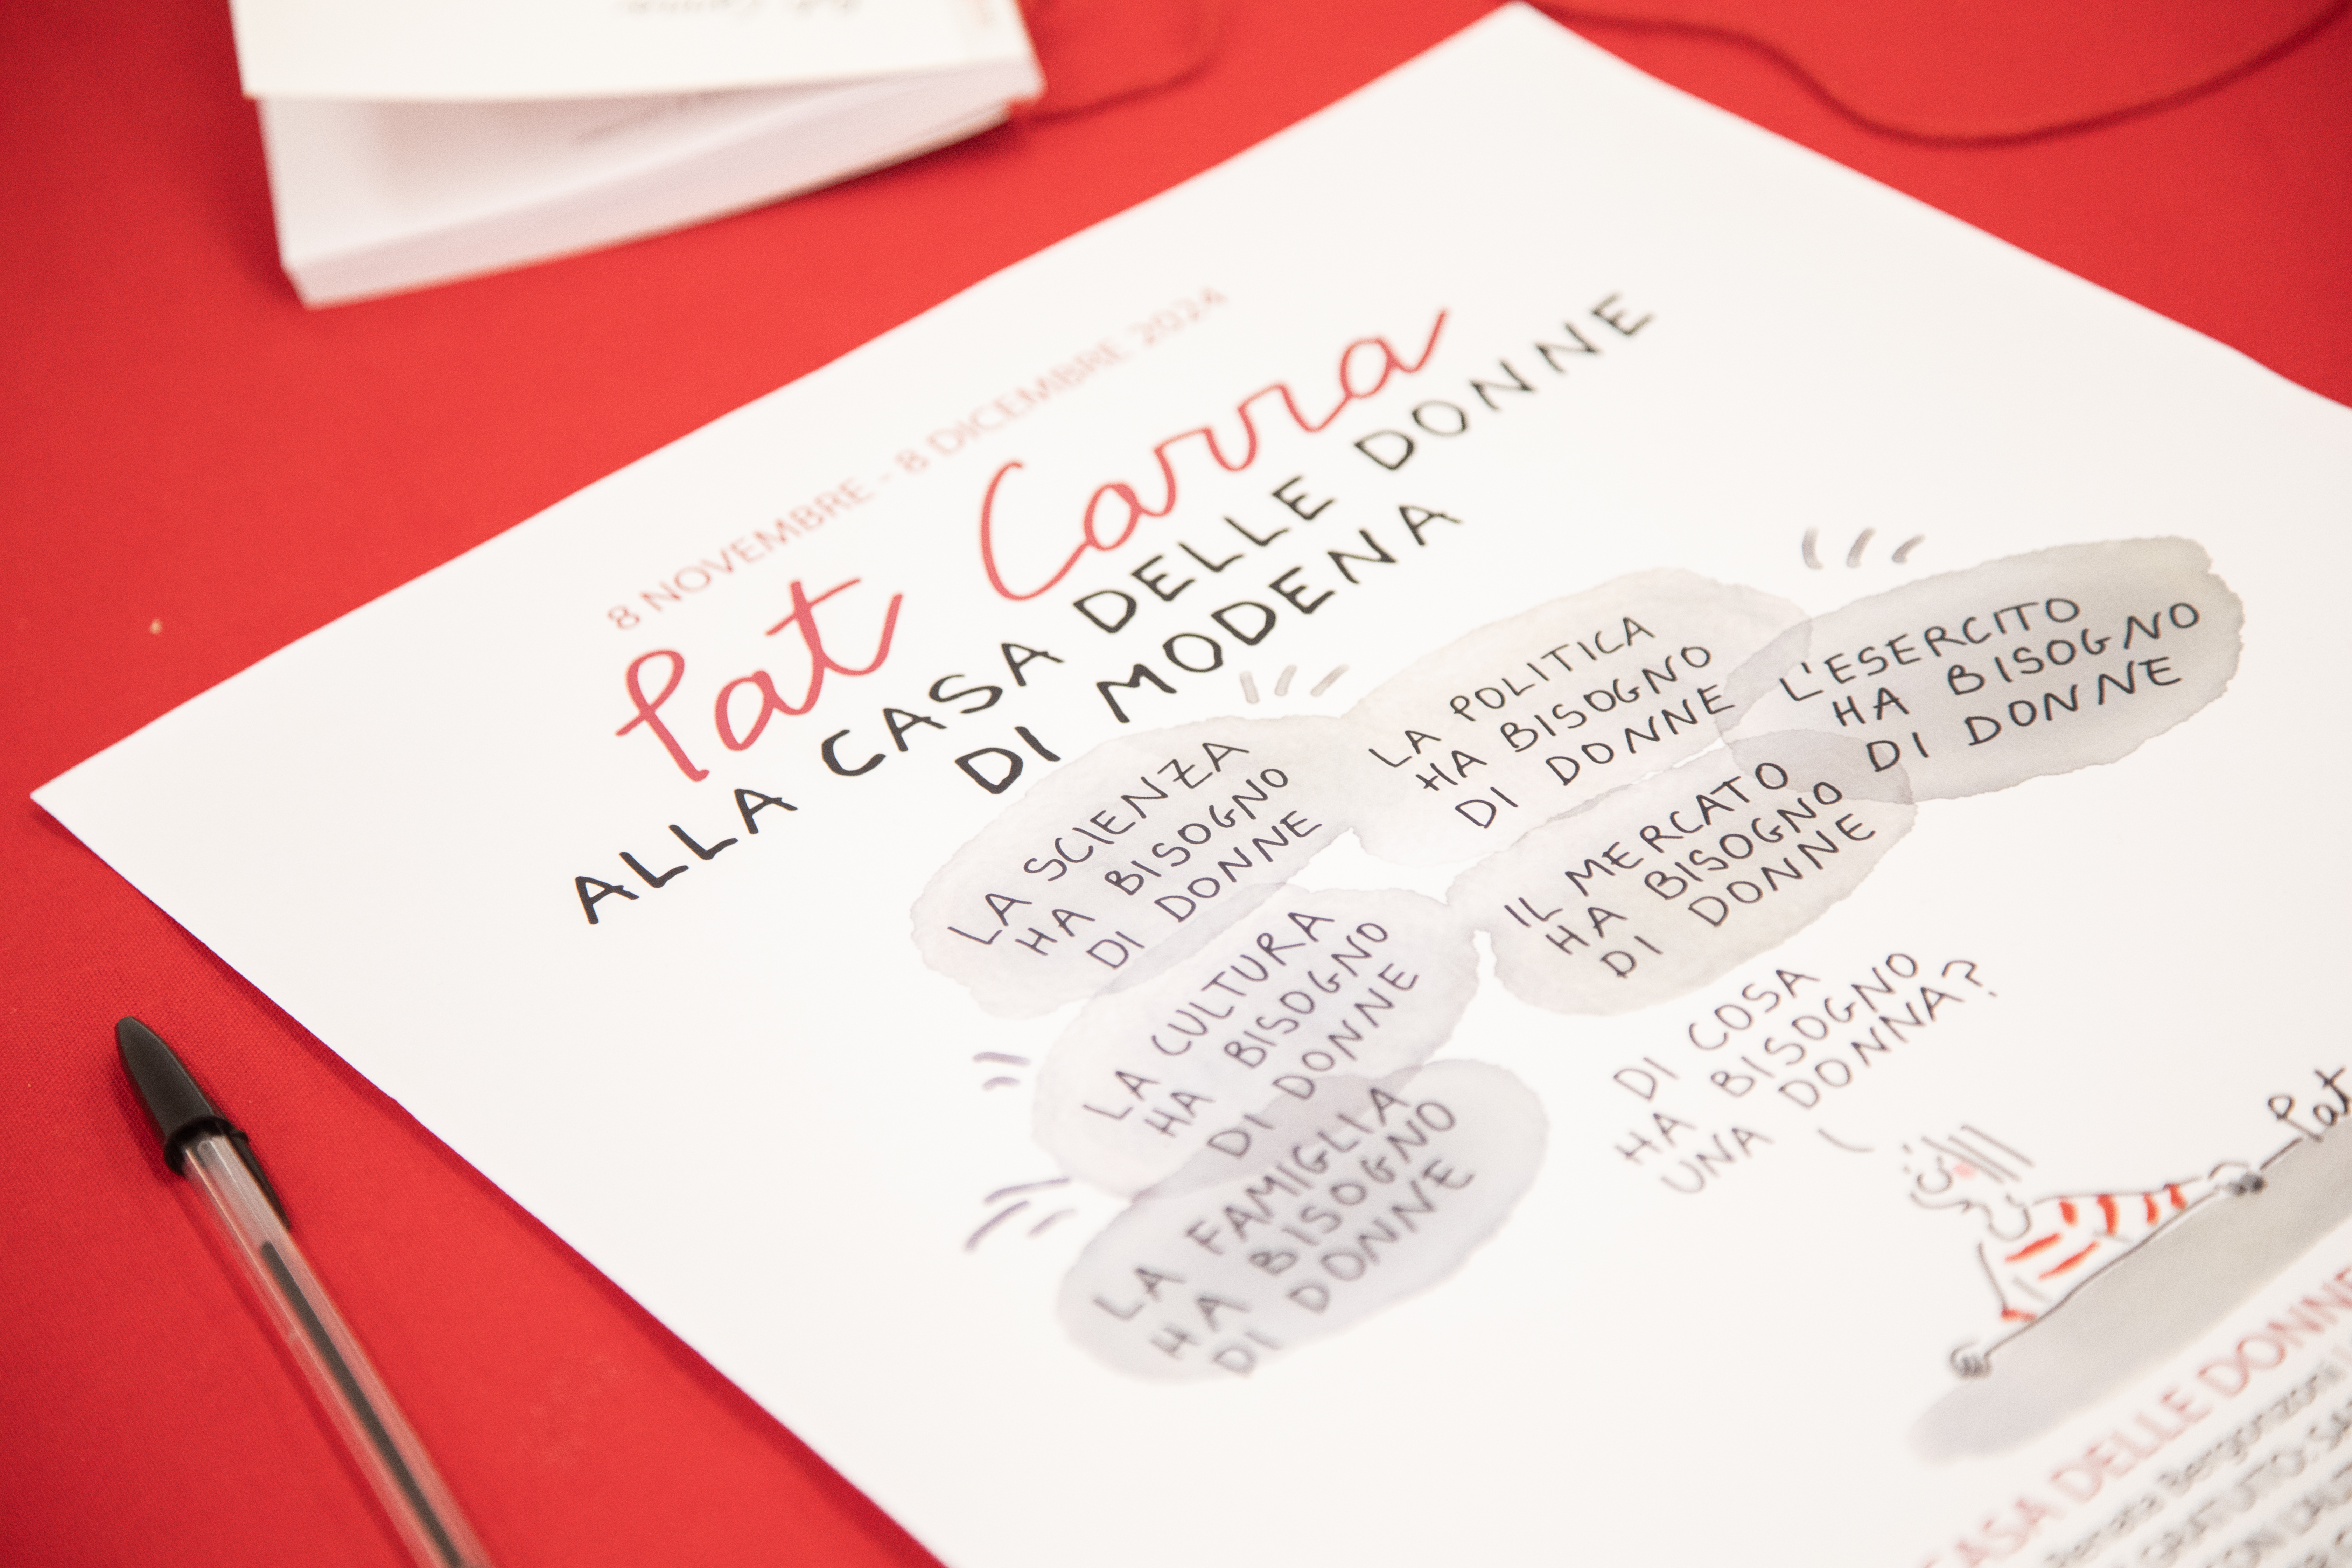 8 NOVEMBRE - 8 DICEMBRE 2024
Pat Carra
ALLA CASA DELLE DONNE
DI MODENA
LA SCIENZA
HA BISOGNO
DI DONNE
LA POLITICA
HA BISOGNO
DI DONNE
L'ESERCITO
HA BISOGNO
DI DONNE
LA CULTURA
HA BISOGNO
DI DONNE
IL MERCATO
HA BISOGNO
DI DONNE
LA FAMIGLIA
HA BISOGNO
DI DONNE
DI COSA
HA BISOGNO
UNA DONNA?
Pat
CASA DELLE DONNE
Renata Bergonzoni
GRATUITO: